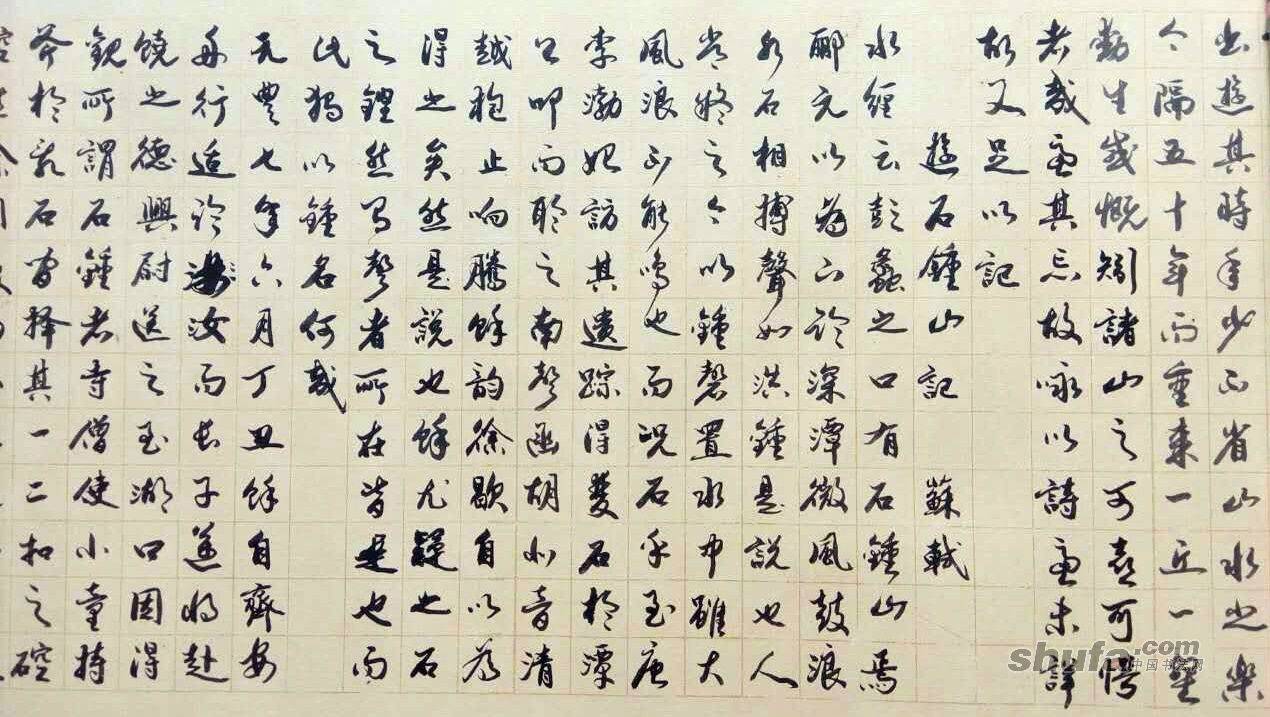 出遊其時年少不省山水之樂
今隔五十年而重來一丘一壑
動生感慨矧諸山之可喜可愕
者哉慮其忘故詠以詩慮未詳
故又足以記
遊石鍾山記 蘇軾
水經云彭蠡之口有石鍾山焉
酈元以為下臨深潭微風鼓浪
水石相搏聲如洪鍾是說也人
常疑之今以鍾磬置水中雖大
風浪不能鳴也而況石乎至唐
李渤始訪其遺踪得雙石於潭
上叩而聆之南聲函胡北音清
越枹止响騰餘韵徐歇自以為
得之矣然是說也餘尤疑之石
之鏗然有聲者所在皆是也而
此獨以鍾名何哉
元豐七年六月丁丑餘自齊安
舟行適臨汝而長子邁將赴
饒之德興尉送之至湖口因得
觀所謂石鍾者寺僧使小童持
斧於亂石間擇其一二扣之硿
shufa.com
中国书法网